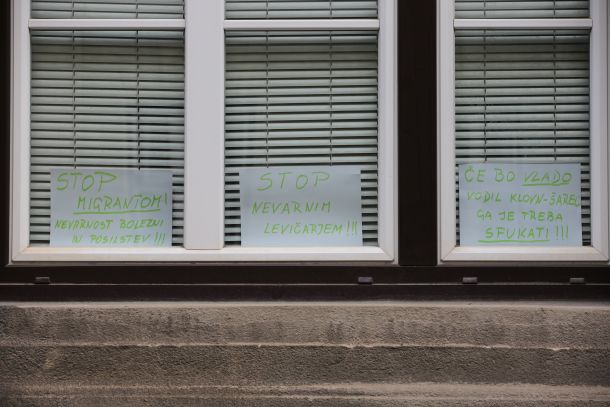 STOP
MIGRANTOM!
NEVARNOST BOLEZNI
IN POSILSTEV !!!
STOP
NEVARNIM
LEVIČARJEM !!!
ČE BO VLADO
VODIL KLOVN-ŠAREC
GA JE TREBA
SFUKATI !!!